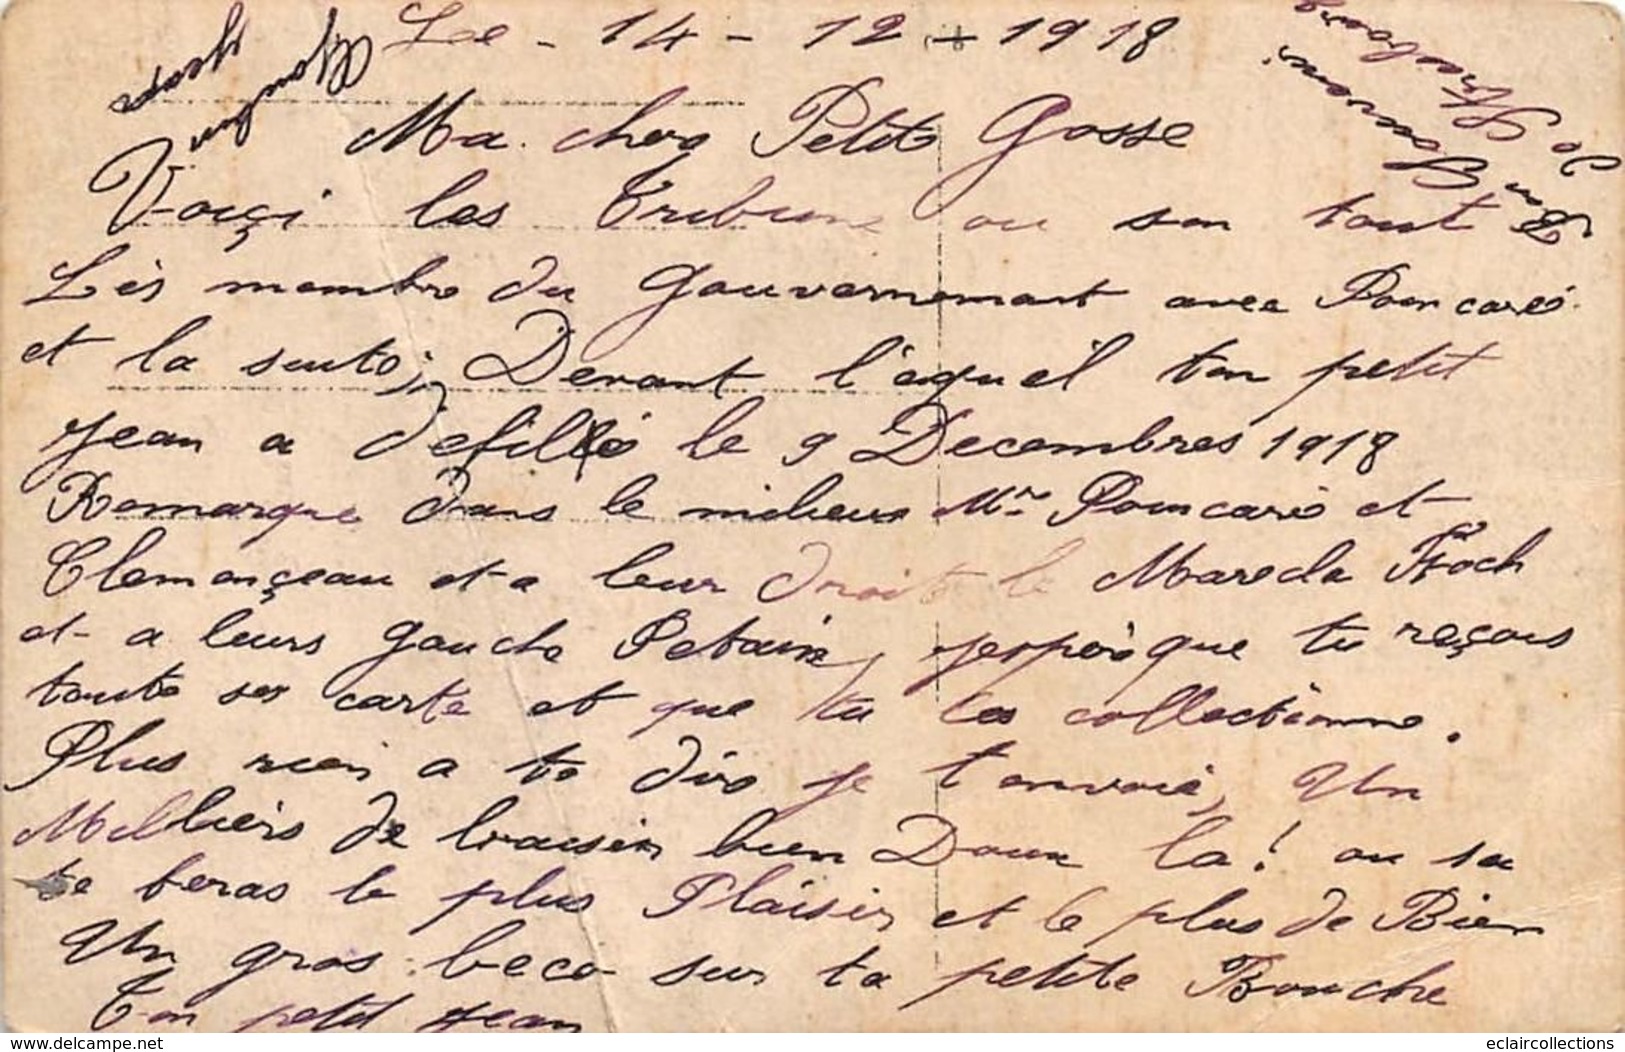 Le - 14 - 12 - 1918
Ma. cher Petite Gosse
Voiçi les Tribune ou son tout
Lés membre du Gouvernement avec Poincaré
et la suite, Devant l'equel ton petit
Jean a défillé le 9 Decembres 1918
Remarque dans le milieux Mr Poincaré et
Clemençeau et a leur droite le Marecla Foch
et a leurs gauche Petain, jespère que tu reçois
toute ses carte et que tu les collectionne.
Plus rien a te dire je t'envoie, Un
Milliers de baisers bien Doux la! ou sa
te feras le plus Plaisir et le plus de Bien
Un gros beco sur ta petite Bouche
Ton petit Jean
www.delcampe.net
eclaircollections